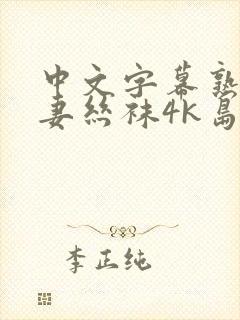 中文字幕熟
妻丝袜4K岛
李正纯